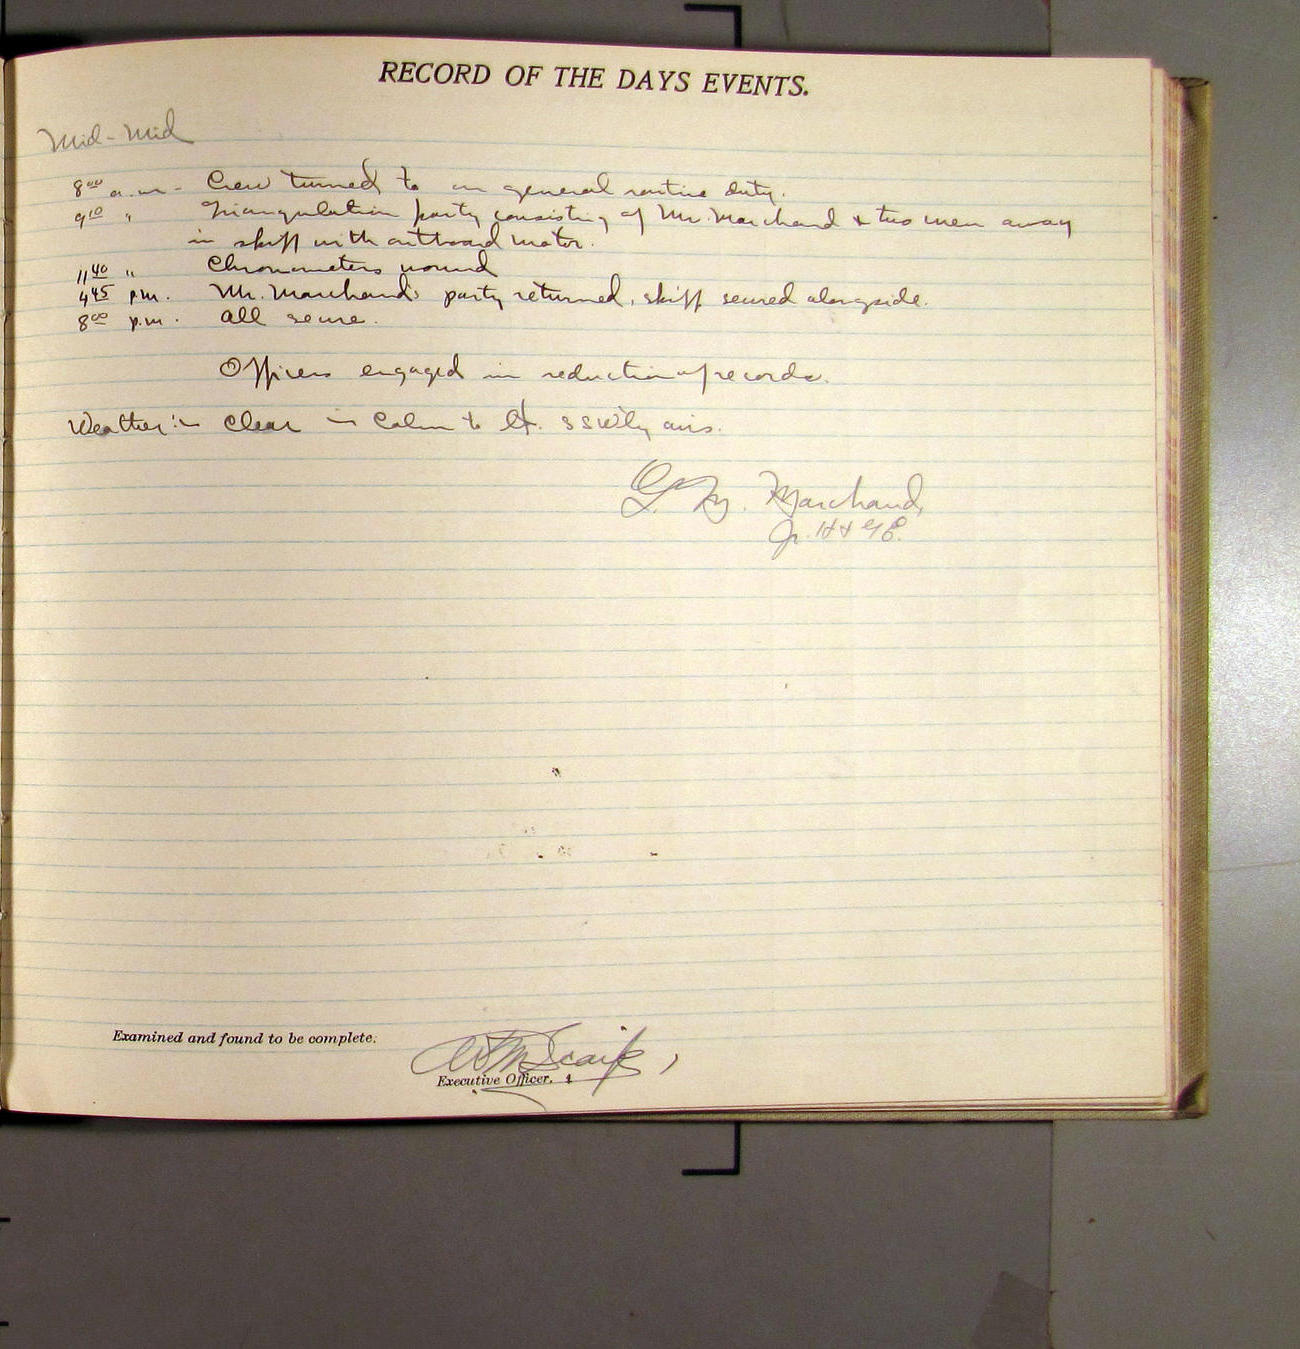 RECORD OF THE DAYS EVENTS.
Mid-Mid
8⁰⁰ a.m - Crew turned to on general routine duty.
9¹⁰ " Triangulation party consisting of Mr. Marchand & two men away
in skiff with outboard motor.
11⁴⁰ " Chronometers wound
4⁴⁵ p.m. Mr. Marchand's party returned, skiff secured alongside.
8⁰⁰ p.m. All secure.
Officers engaged in reduction of records.
Weather:- Clear - Calm to lt. SSW'ly airs.
Marchand,
Jr. H & G E.
Examined and found to be complete.
Scaife,
Executive Officer.